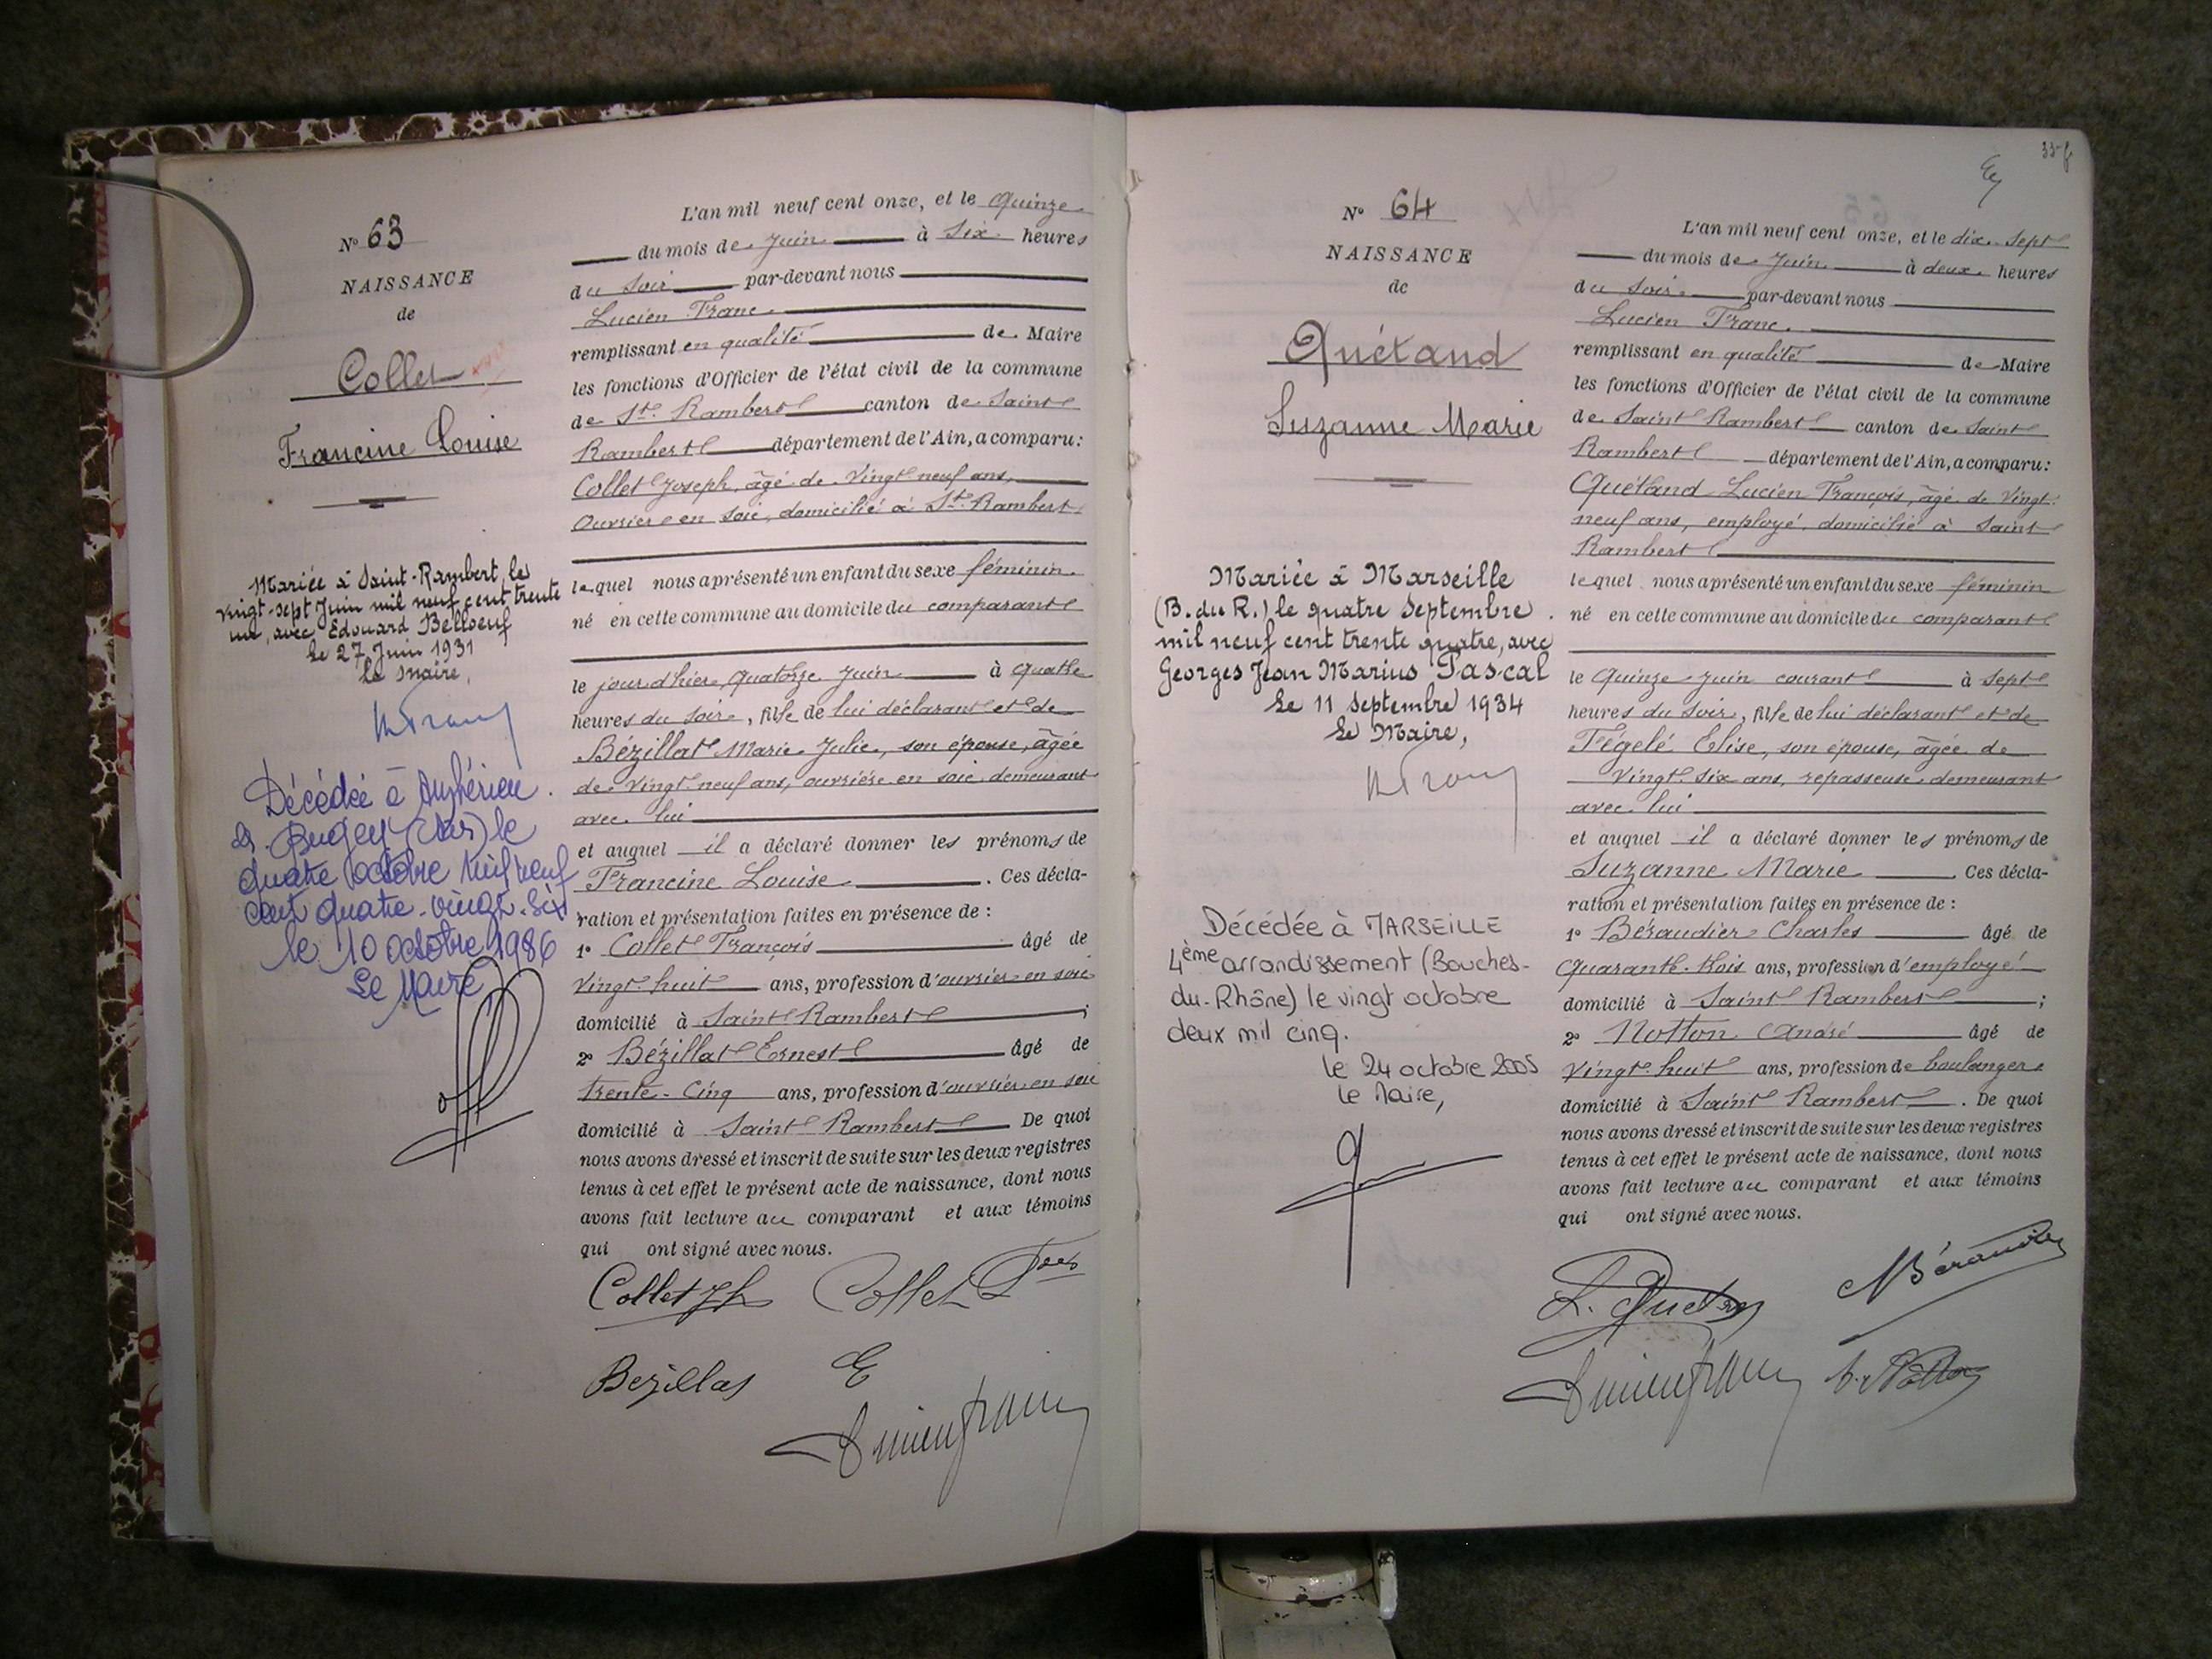 N° 63
NAISSANCE
de
Collet
Francine Louise
Mariée à Saint-Rambert, le
vingt-sept Juin mil neuf cent trente
un, avec Edouard Belloeuf
Le 27 Juin 1931
Le Maire,
Décédée à Ambérieu
en Bugey (Ain) le
quatre octobre mil neuf
cent quatre-vingt-six
le 10 octobre 1986
Le Maire
L'an mil neuf cent onze, et le Quinze
du mois de Juin à Six heures
du Soir par-devant nous
Lucien Franc
remplissant en qualité de Maire
les fonctions d'Officier de l'état civil de la commune
de St. Rambert canton de Saint
Rambert département de l'Ain, a comparu :
Collet Joseph, âgé de Vingt neuf ans,
Ouvrier en soie, domicilié à St. Rambert
lequel nous a présenté un enfant du sexe féminin
né en cette commune au domicile du comparant
le jour d'hier, quatorze Juin à quatre
heures du Soir, fille de lui déclarant et de
Bézillat Marie Julie, son épouse, âgée
de vingt neuf ans, ouvrière en soie demeurant
avec lui
et auquel il a déclaré donner les prénoms de
Francine Louise. Ces décla-
ration et présentation faites en présence de :
1° Collet François âgé de
Vingt huit ans, profession d'ouvrier en soie
domicilié à Saint Rambert ;
2° Bézillat Ernest âgé de
trente-cinq ans, profession d'ouvrier en soie
domicilié à Saint Rambert De quoi
nous avons dressé et inscrit de suite sur les deux registres
tenus à cet effet le présent acte de naissance, dont nous
avons fait lecture au comparant et aux témoins
qui ont signé avec nous.
Collet Jh Collet Fçois
Bezillat E
Lucien Franc
N° 64
NAISSANCE
de
Quétand
Suzanne Marie
Mariée à Marseille
(B. du R.) le quatre Septembre
mil neuf cent trente quatre, avec
Georges Jean Marius Pascal
Le 11 Septembre 1934
Le Maire,
Décédée à MARSEILLE
4ème arrondissement (Bouches-
du-Rhône) le vingt octobre
deux mil cinq.
le 24 octobre 2005
Le Maire,
L'an mil neuf cent onze, et le dix-sept
du mois de Juin à deux heures
du Soir par-devant nous
Lucien Franc.
remplissant en qualité de Maire
les fonctions d'Officier de l'état civil de la commune
de Saint Rambert canton de Saint
Rambert département de l'Ain, a comparu :
Quétand Lucien François, âgé de Vingt
neuf ans, employé, domicilié à Saint
Rambert
lequel nous a présenté un enfant du sexe féminin
né en cette commune au domicile du comparant
le Quinze Juin courant à sept
heures du Soir, fille de lui déclarant et de
Fégelé Elise, son épouse, âgée de
Vingt six ans, repasseuse, demeurant
avec lui
et auquel il a déclaré donner les prénoms de
Suzanne Marie. Ces décla-
ration et présentation faites en présence de :
1° Béraudier Charles âgé de
Quarante-trois ans, profession d'employé
domicilié à Saint Rambert ;
2° Notton André âgé de
Vingt huit ans, profession de boulanger
domicilié à Saint Rambert. De quoi
nous avons dressé et inscrit de suite sur les deux registres
tenus à cet effet le présent acte de naissance, dont nous
avons fait lecture au comparant et aux témoins
qui ont signé avec nous.
L. Quétand
Lucien Franc